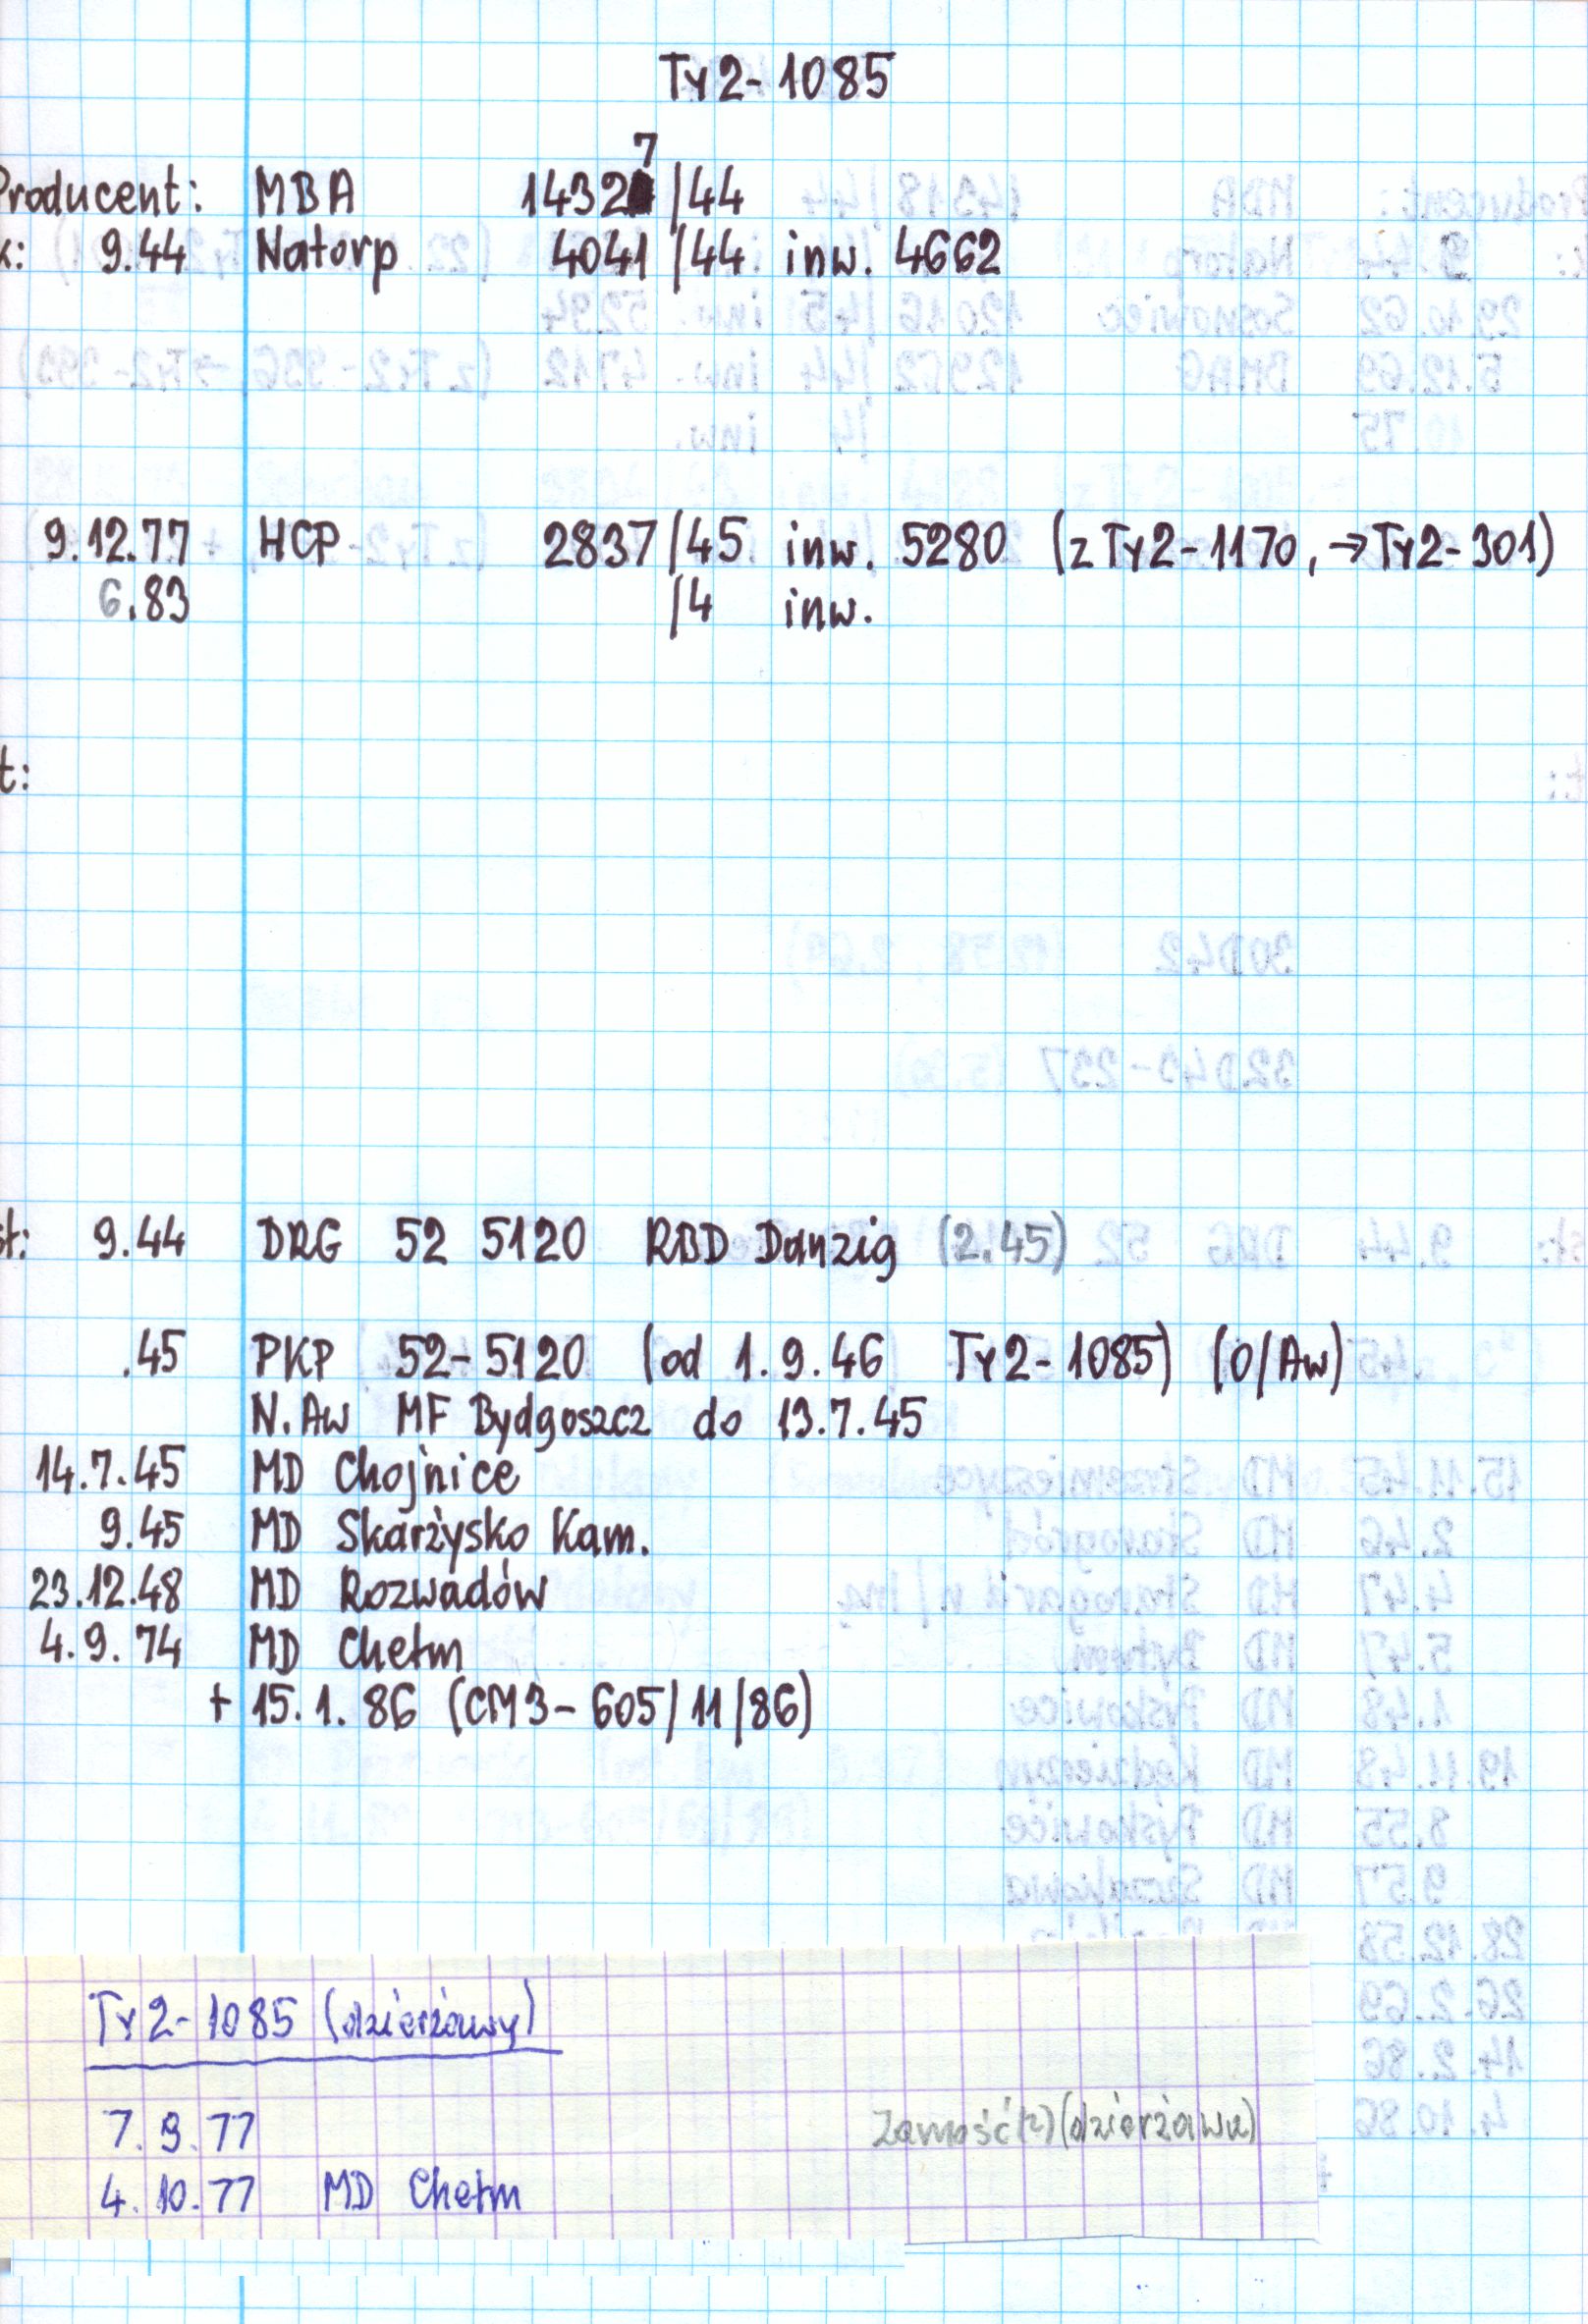 Ty2-1085
7
Producent: MBA 1432 /44
k: 9.44 Natorp 4041 /44 inw. 4662
9.12.77 HCP 2837 /45 inw. 5280 (z Ty2-1170, → Ty2-301)
6.83 /4 inw.
t:
st: 9.44 DRG 52 5120 RBD Danzig (2.45)
.45 PKP 52-5120 (od 1.9.46 Ty2-1085) (0/Aw)
N.Aw MF Bydgoszcz do 13.7.45
14.7.45 MD Chojnice
9.45 MD Skarżysko Kam.
23.12.48 MD Rozwadów
4.9.74 MD Chełm
+ 15.1.86 (CM3-605/11/86)
Ty2-1085 (dzierżawy)
7.9.77 Zamość(?) (dzierżawa)
4.10.77 MD Chełm